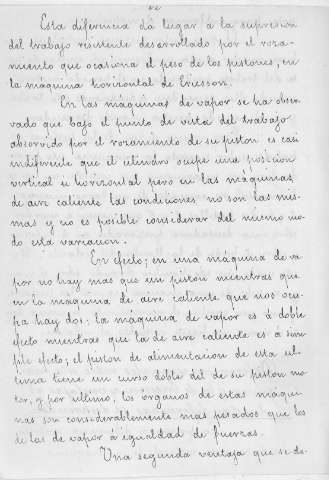 Esta diferencia dá lugar á la supresion
del trabajo resistente desarrollado por el roza-
miento que ocasiona el peso de los pistones, en
la máquina horizontal de Ericsson.
En las máquinas de vapor se ha obser-
vado que bajo el punto de vista del trabajo
absorvido por el rozamiento de su piston es casi
indiferente que el cilindro ocupe una posicion
vertical u horizontal pero en las máquinas
de aire caliente las condiciones no son las mis-
mas y no es posible considerar del mismo mo-
do esta variacion.
En efecto; en una máquina de va-
por no hay mas que un piston mientras que
en la máquina de aire caliente que nos ocu-
pa hay dos; la máquina de vapor es á doble
efecto mientras que la de aire caliente es á sim-
ple efecto; el piston de alimentacion de esta ul-
tima tiene un curso doble del de su piston mo-
tor, y por ultimo, los órganos de estas máqui-
nas son considerablemente mas pesados que los
de las de vapor á igualdad de fuerzas.
Una segunda ventaja que se de-